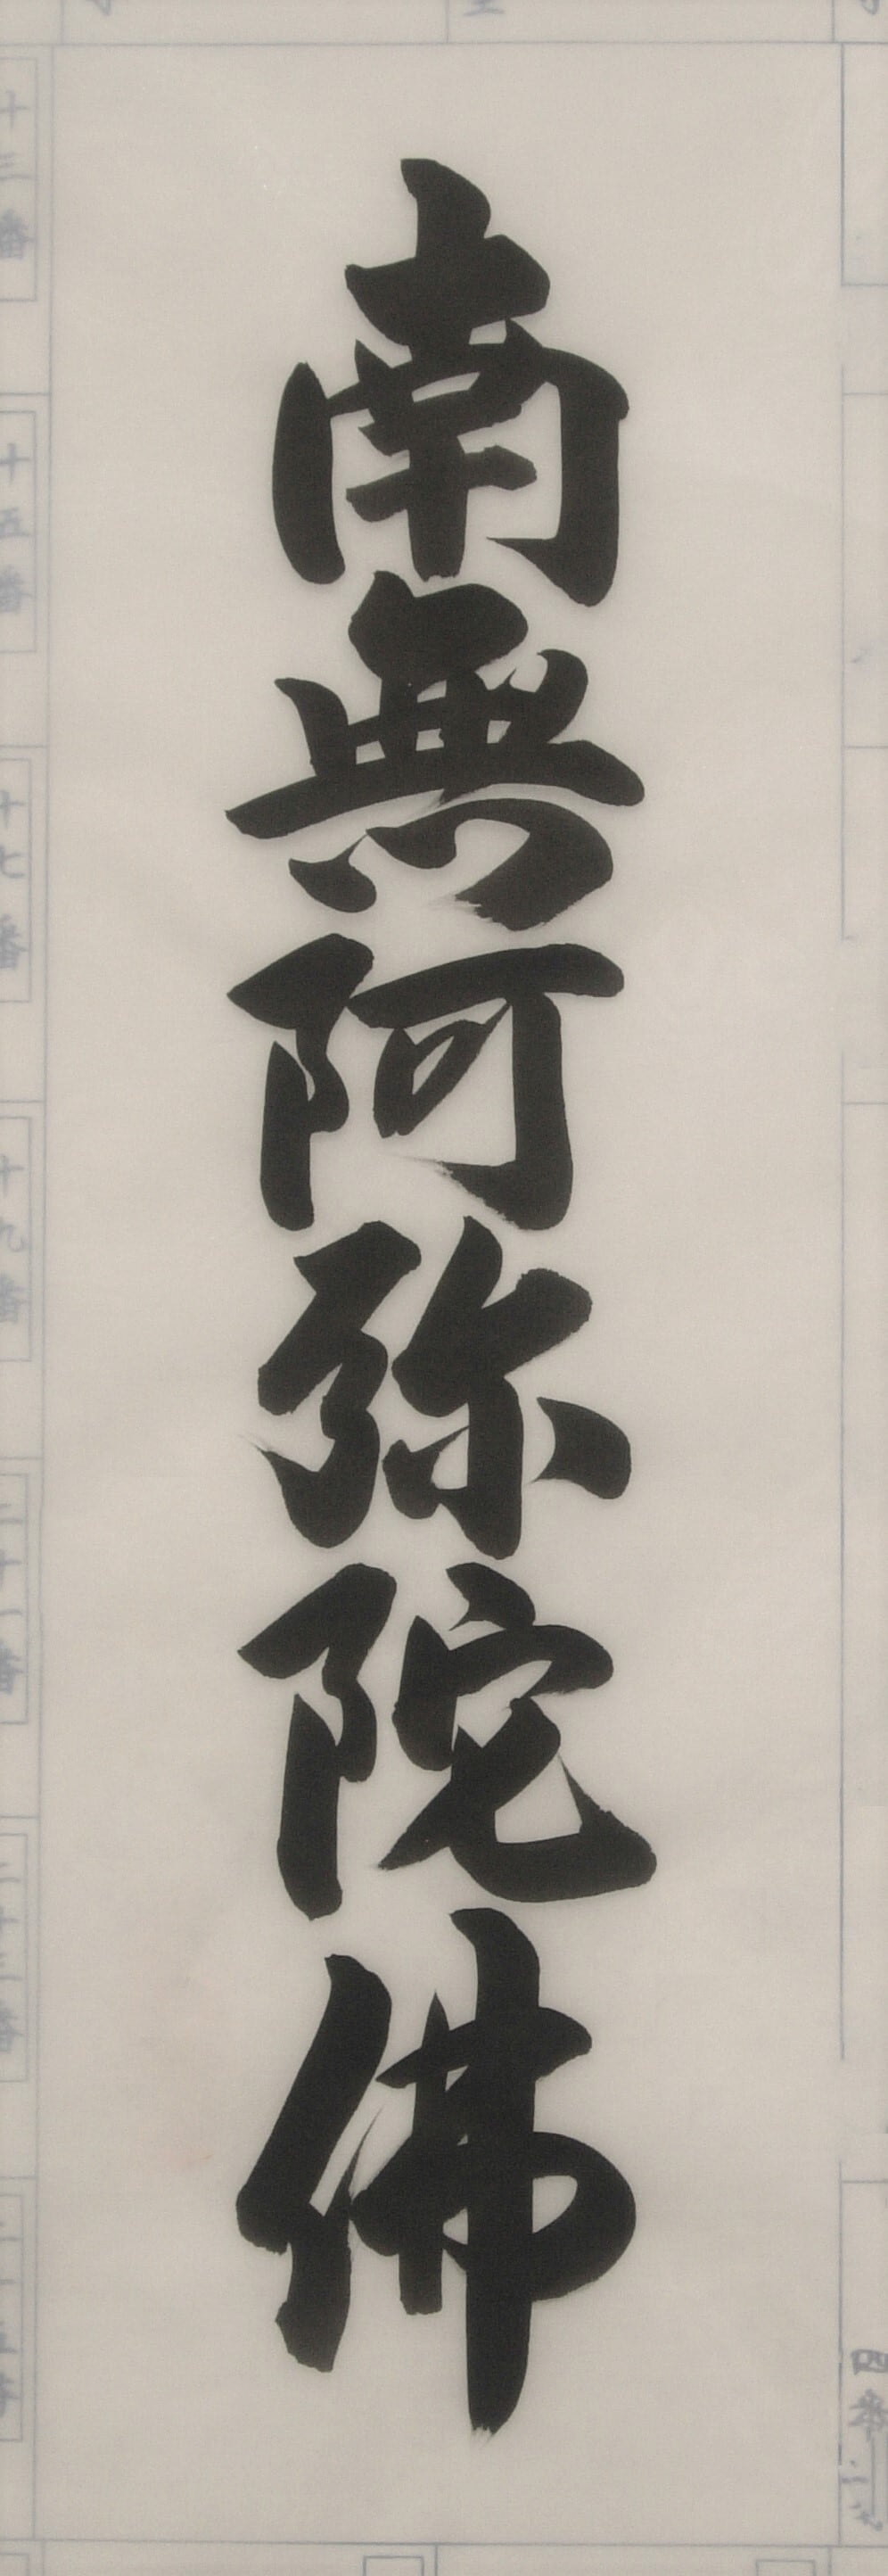 南無阿弥陀佛
十三番
十五番
十七番
十九番
二十一番
二十三番
二十五番
四番